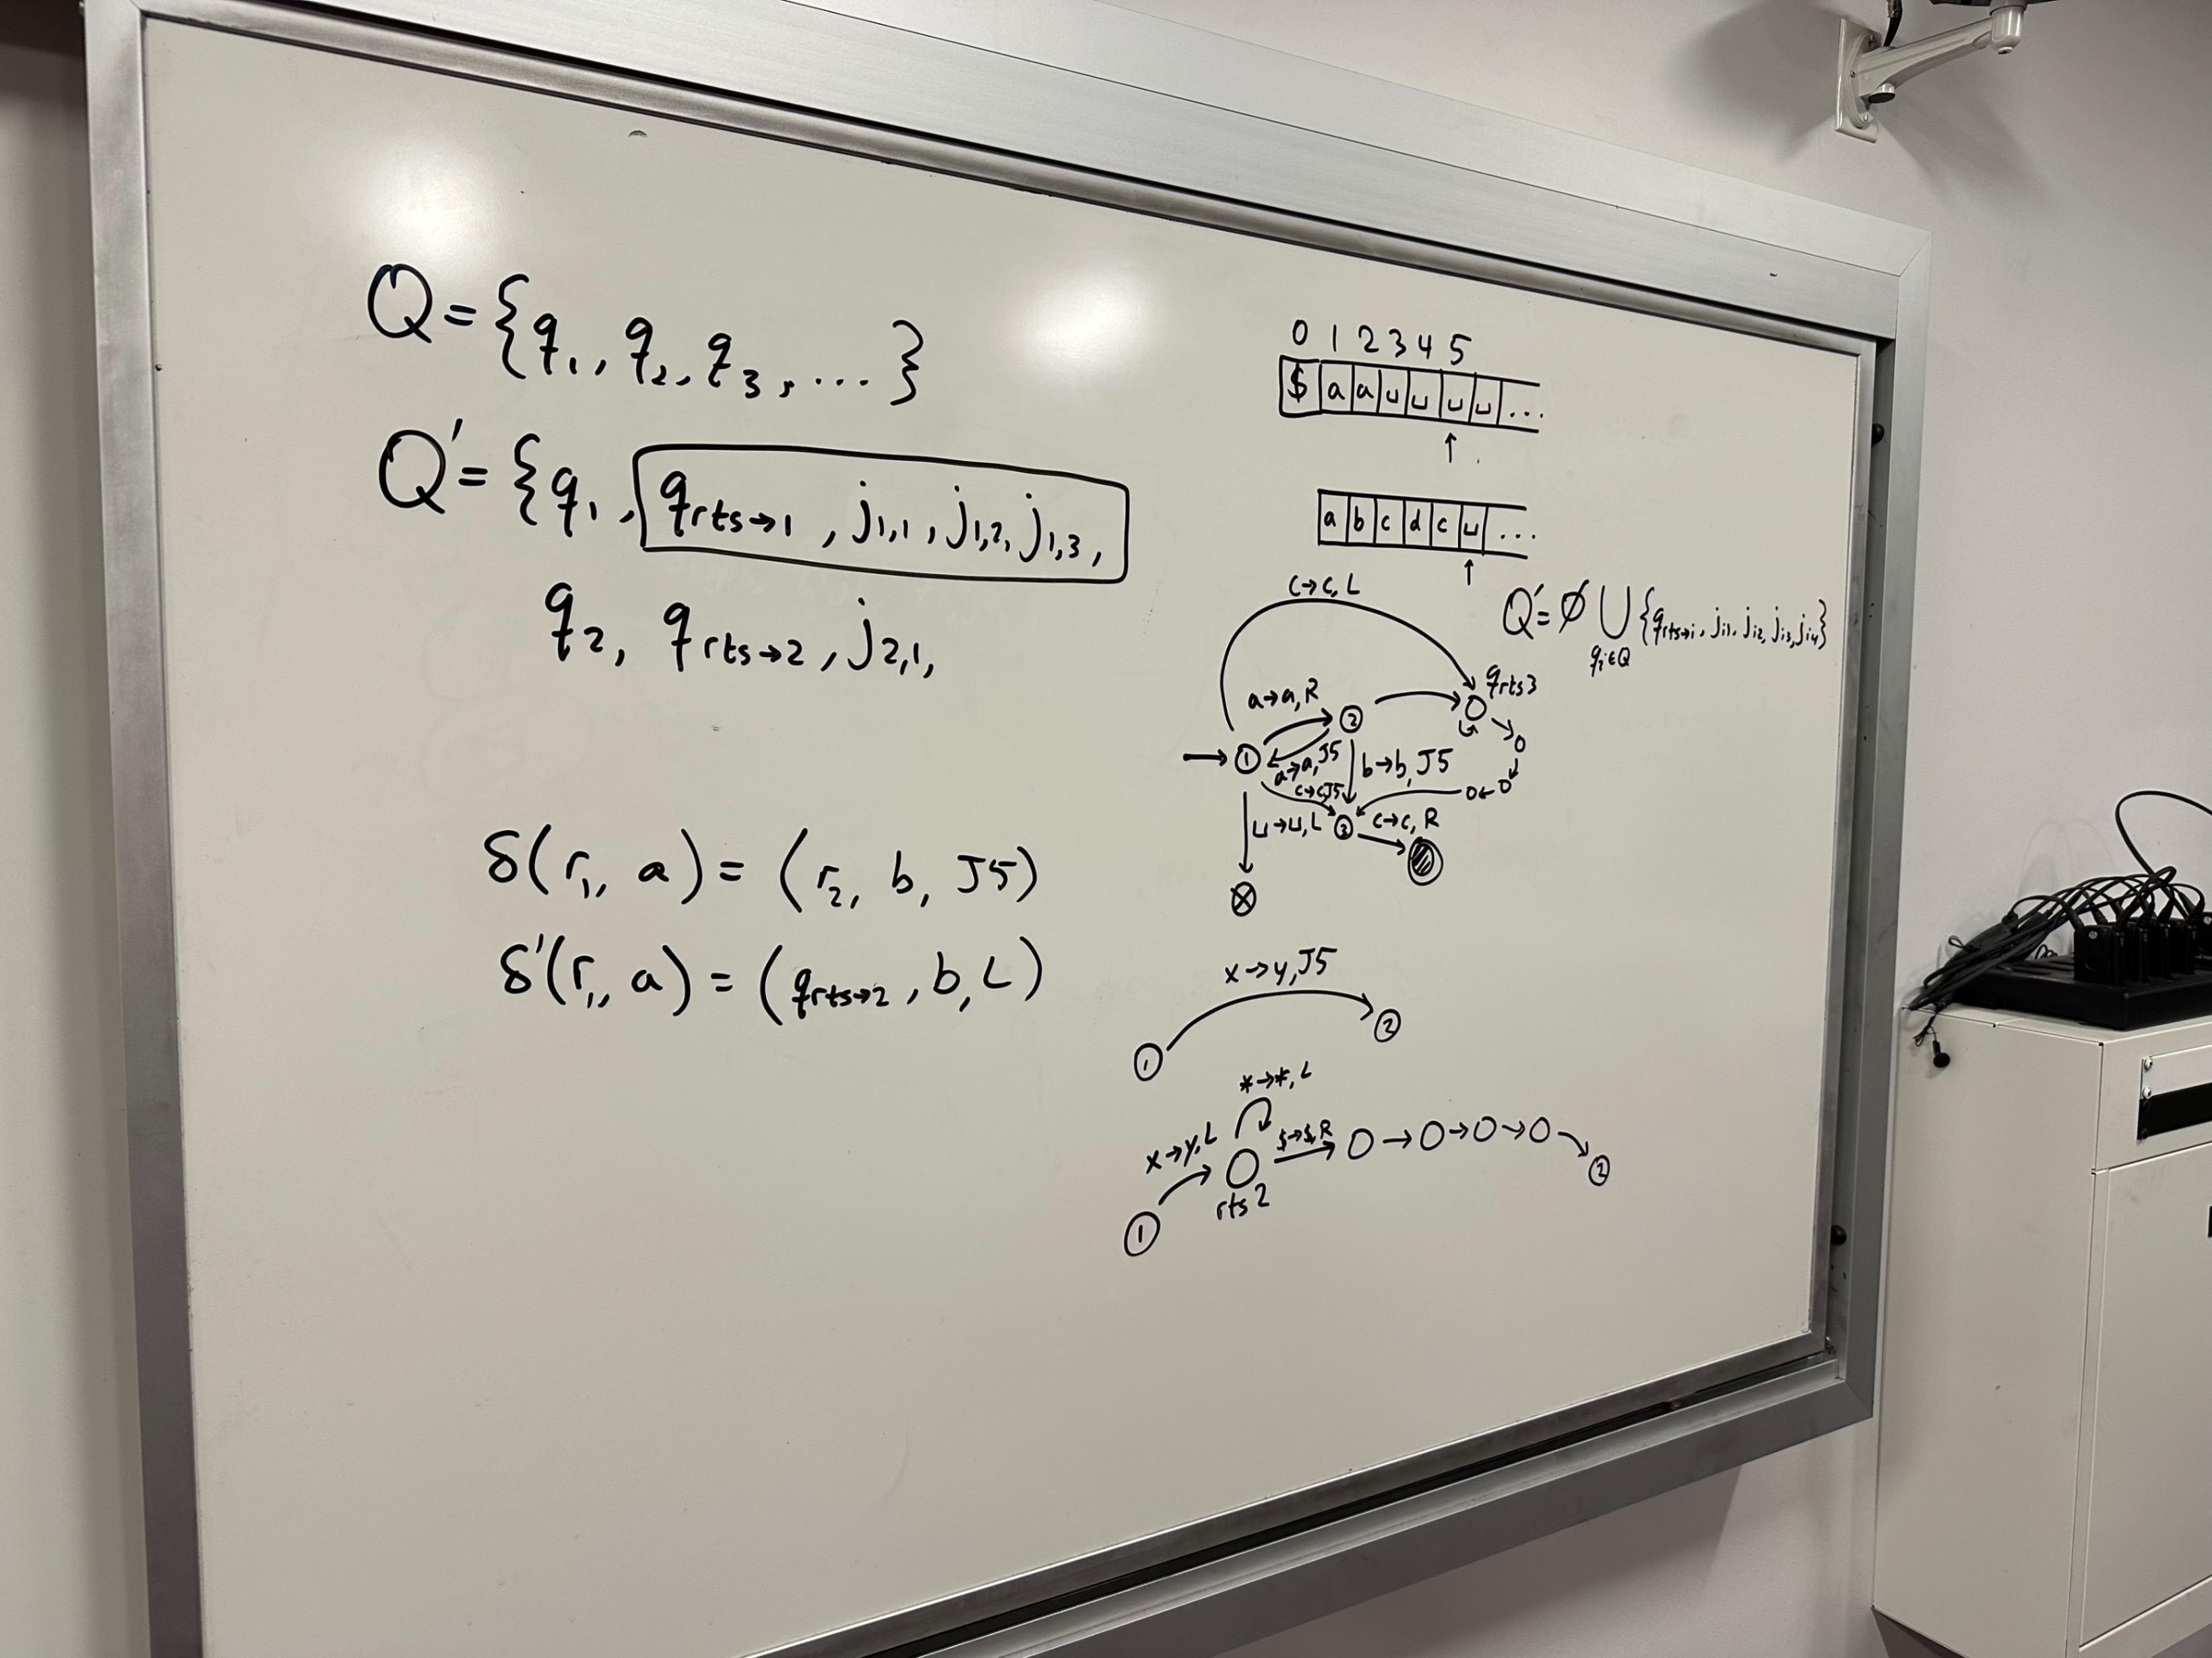 Q = {q₁, q₂, q₃, ... }
Q' = {q₁, q_rts→1, j₁,₁, j₁,₂, j₁,₃,
q₂, q_rts→2, j₂,₁,
δ(r₁, a) = (r₂, b, J5)
δ'(r₁, a) = (q_rts→2, b, L)
0 1 2 3 4 5
$ a a ⊔ ⊔ ⊔ ⊔ ...
↑
a b c d c ⊔ ...
↑
Q' = ∅ ⋃ {q_rts→i, j_i1, j_i2, j_i3, j_i4}
q_i∈Q
c→c, L
q_rts3
a→a, R
2
1
a→a, J5
b→b, J5
c→c, J5
⊔→⊔, L
3
c→c, R
x→y, J5
1
2
*→*, L
x→y, L
$→$, R
rts2
1
2